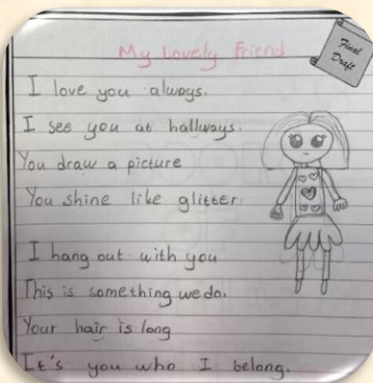 My Lovely Friend
Final
Draft
I love you always.
I see you at hallways.
You draw a picture
You shine like glitter
I hang out with you
This is something we do.
Your hair is long
It's you who I belong.